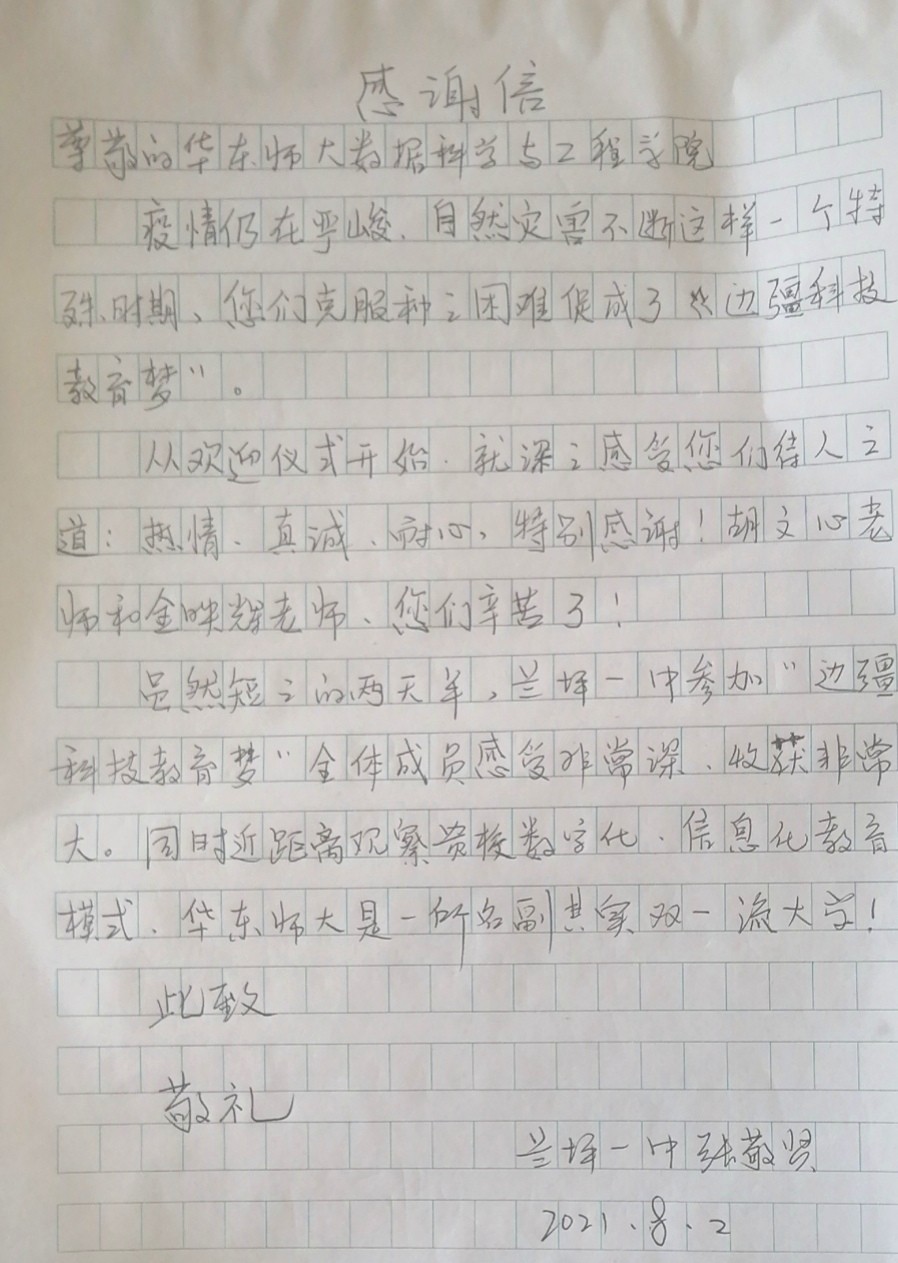 感谢信
尊敬的华东师大数据科学与工程学院
疫情仍在严峻、自然灾害不断这样一个特
殊时期、您们克服种种困难促成了“边疆科技
教育梦”。
从欢迎仪式开始、就深深感受您们待人之
道：热情、真诚、耐心，特别感谢！胡文心老
师和金映辉老师、您们辛苦了！
虽然短短的两天半，兰坪一中参加“边疆
科技教育梦”全体成员感受非常深、收获非常
大。同时近距离观察贵校数字化、信息化教育
模式、华东师大是一所名副其实双一流大学！
此致
敬礼
兰坪一中张敬贤
2021.8.2